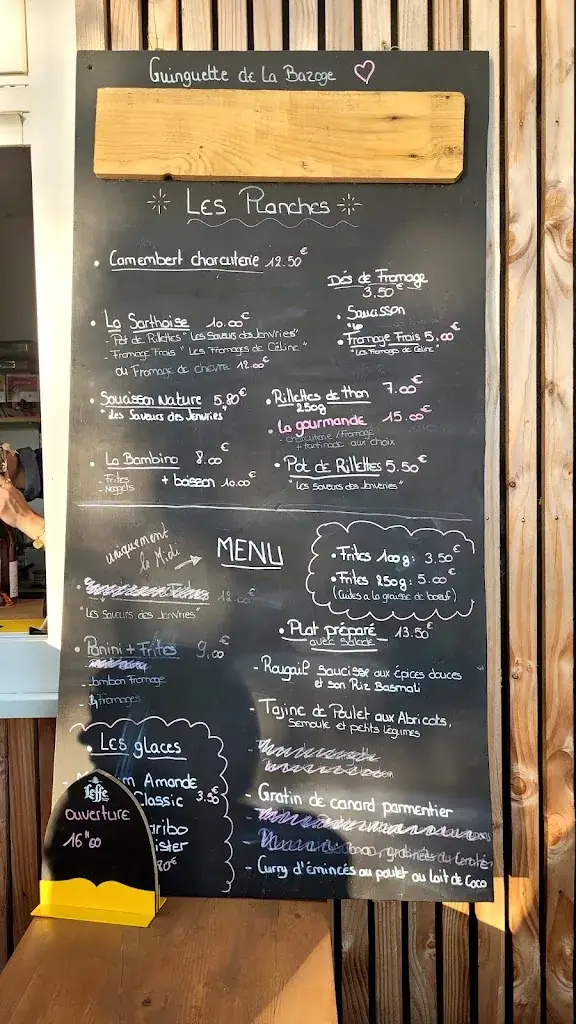 Guinguette de La Bazoge
Les Planches
Camembert charcuterie 12.50€
Dés de Fromage
3,50€
• Saucisson
• Fromage Frais 5,00€
"Les Fromages de Céline"
• La Sarthoise 10.00€
- Pot de Rillettes "Les Saveurs des Jenvries"
- Fromage Frais "Les Fromages de Céline"
ou Fromage de chèvre 12.00€
• Saucisson Nature 5,80€
"Les Saveurs des Jenvries"
• Rillettes de thon 7.00€
250g
• La gourmande 15.00€
- charcuterie/fromage
+ tartinade aux choix
• La Bambino 8.00€
- Frites
- Nuggets
+ boisson 10.00€
• Pot de Rillettes 5.50€
"Les Saveurs des Jenvries"
uniquement
le Midi
MENU
• Frites 100g: 3.50€
• Frites 250g: 5.00€
(Cuites a la graisse de boeuf)
12.00€
"Les Saveurs des Jenvries"
• Panini + Frites 9,00€
- Jambon Fromage
Fromages
• Plat préparé 13.50€
avec salade
- Rougail saucisse aux épices douces
et son Riz Basmati
- Tajine de Poulet aux Abricots,
Semoule et petits légumes
- Gratin de canard parmentier
- Curry d'émincés au poulet au lait de Coco
• Les glaces
Amande
Classic 3.50€
Leffe
ouverture
16H00